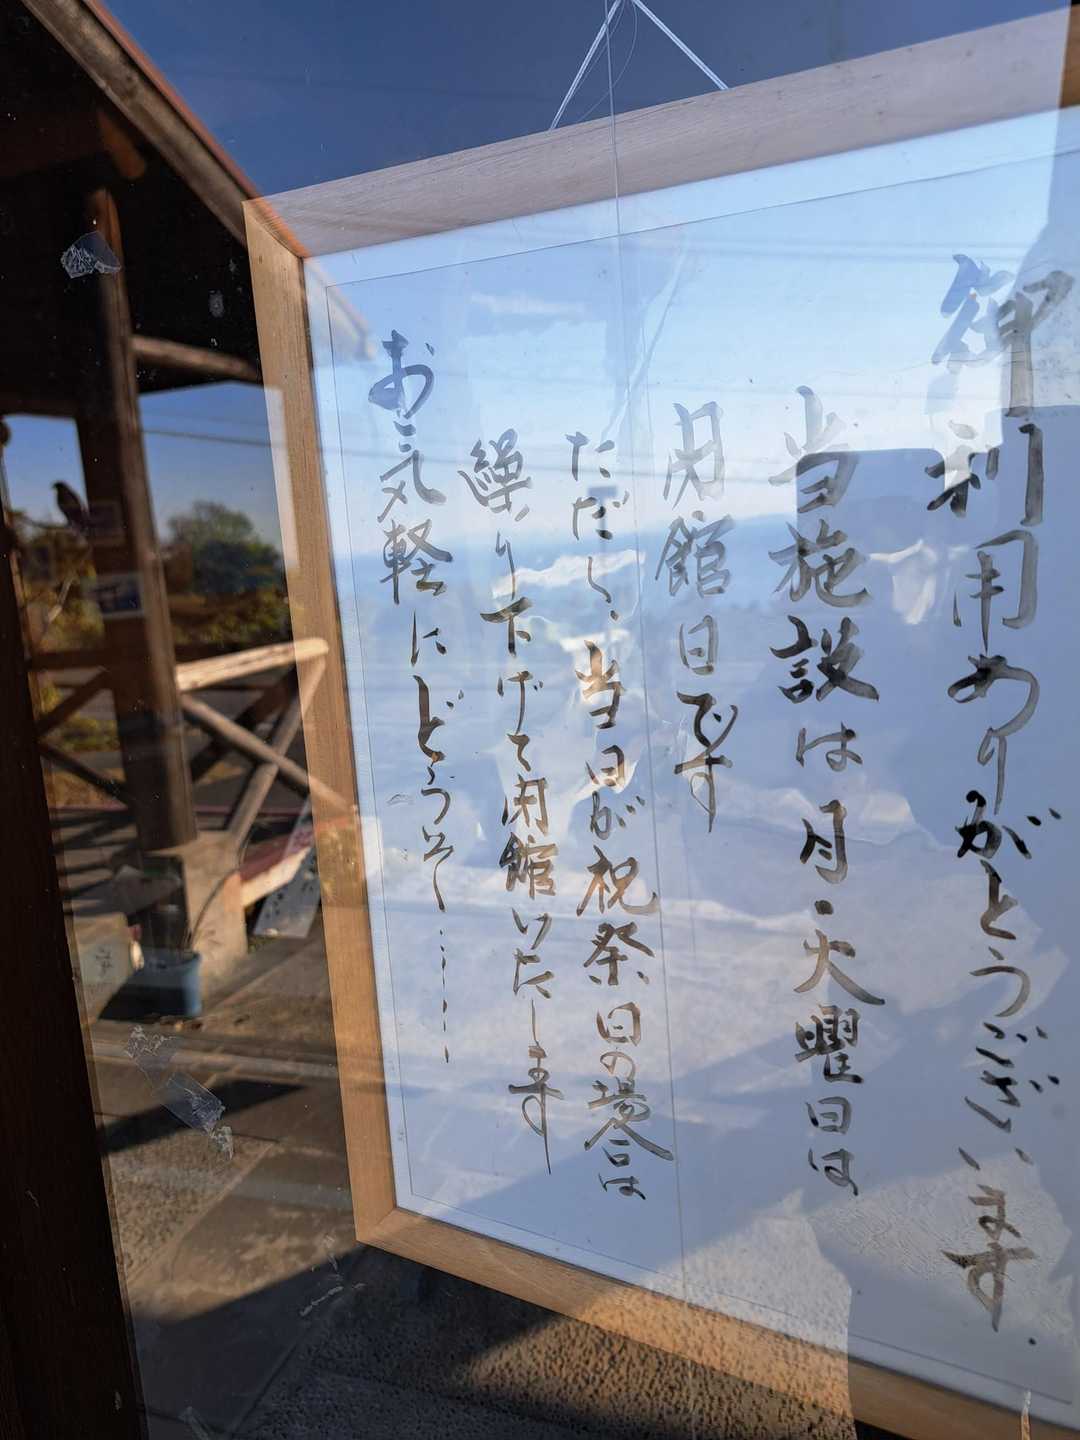 御利用ありがとうございます.
当施設は月・火曜日は
閉館日です
ただし、当日が祝祭日の場合は
繰り下げて閉館いたします
お気軽にどうぞ……